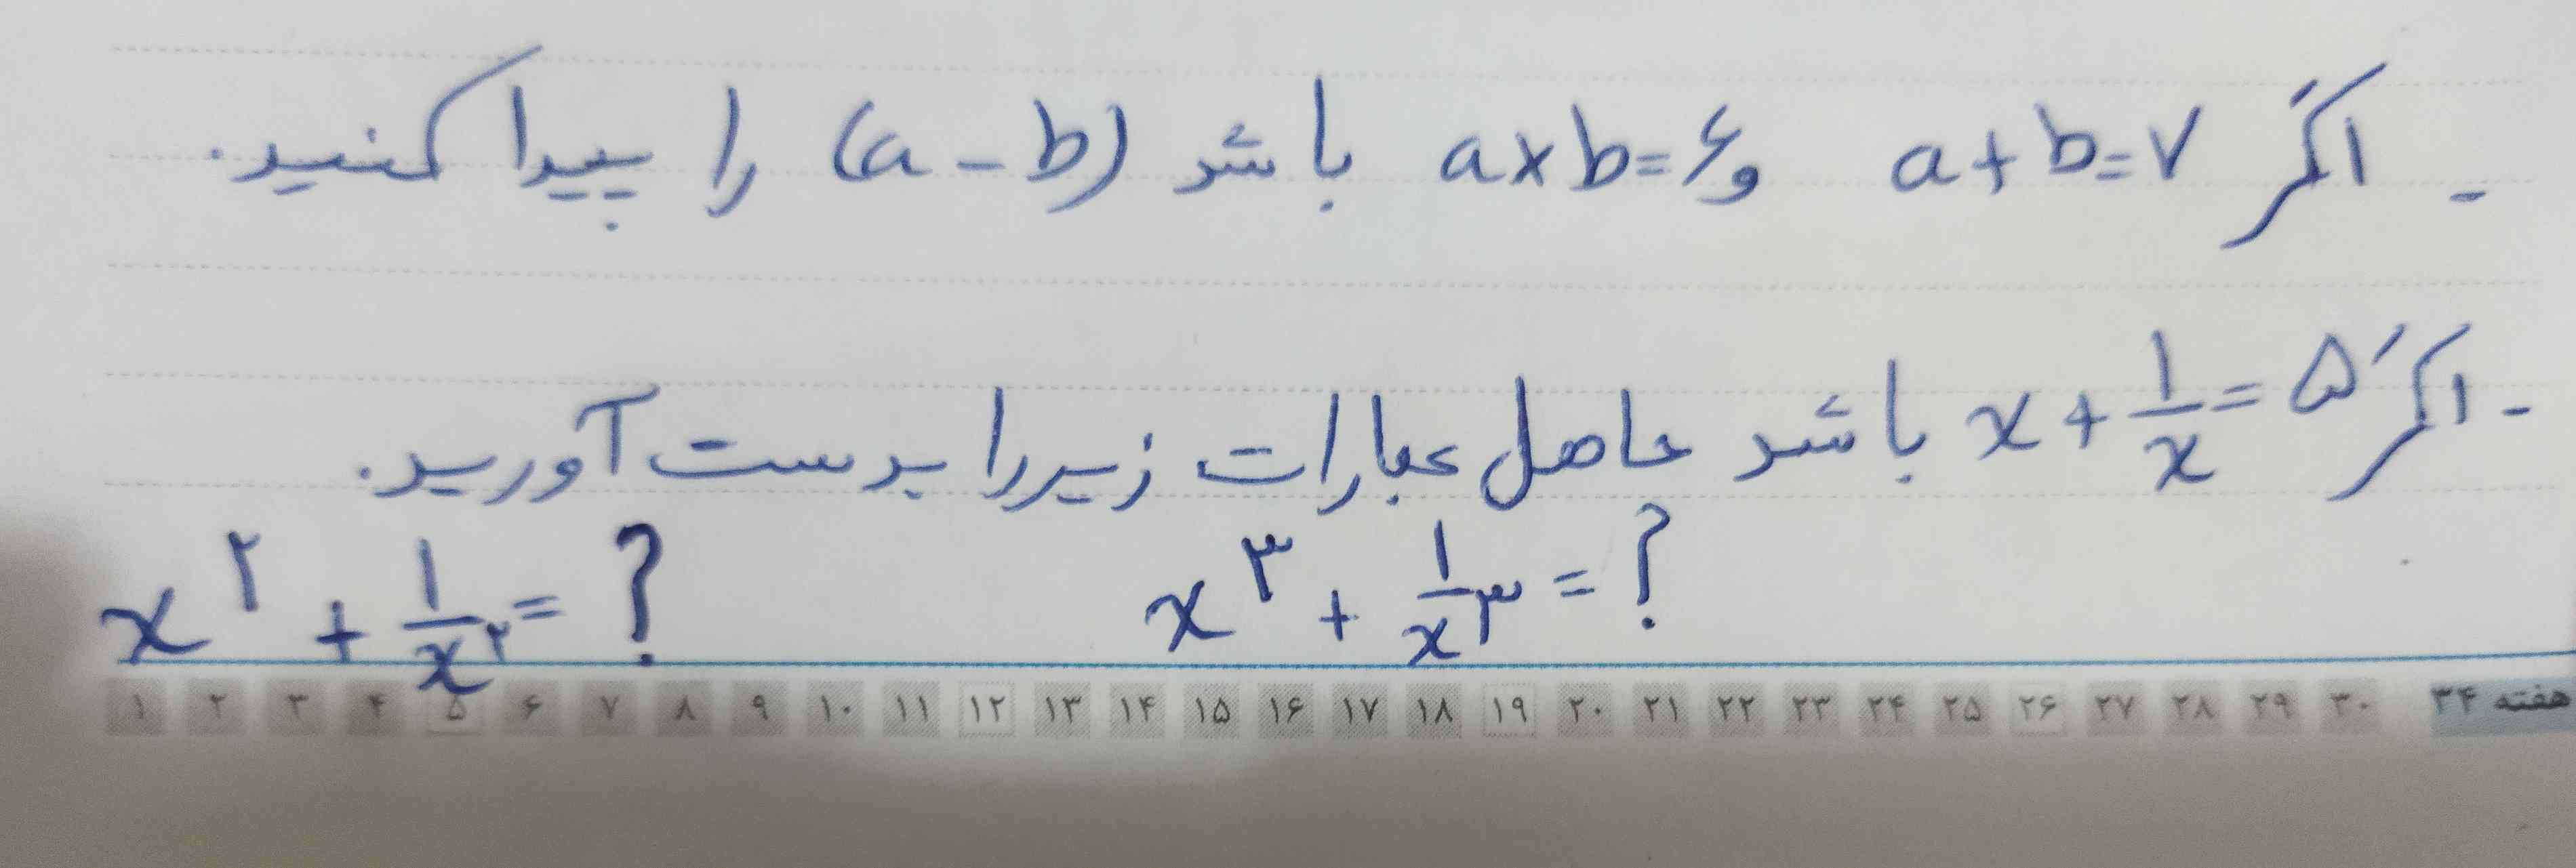 - اگر a+b=۷ و a×b=۶ باشد (a-b) را پیدا کنید.
- اگر x+1/x=۵ باشد حاصل عبارات زیر را بدست آورید.
x^۲ + ۱/x^۲ = ? x^۳ + ۱/x^۳ = ?
۱ ۲ ۳ ۴ ۵ ۶ ۷ ۸ ۹ ۱۰ ۱۱ ۱۲ ۱۳ ۱۴ ۱۵ ۱۶ ۱۷ ۱۸ ۱۹ ۲۰ ۲۱ ۲۲ ۲۳ ۲۴ ۲۵ ۲۶ ۲۷ ۲۸ ۲۹ ۳۰ هفته ۳۴